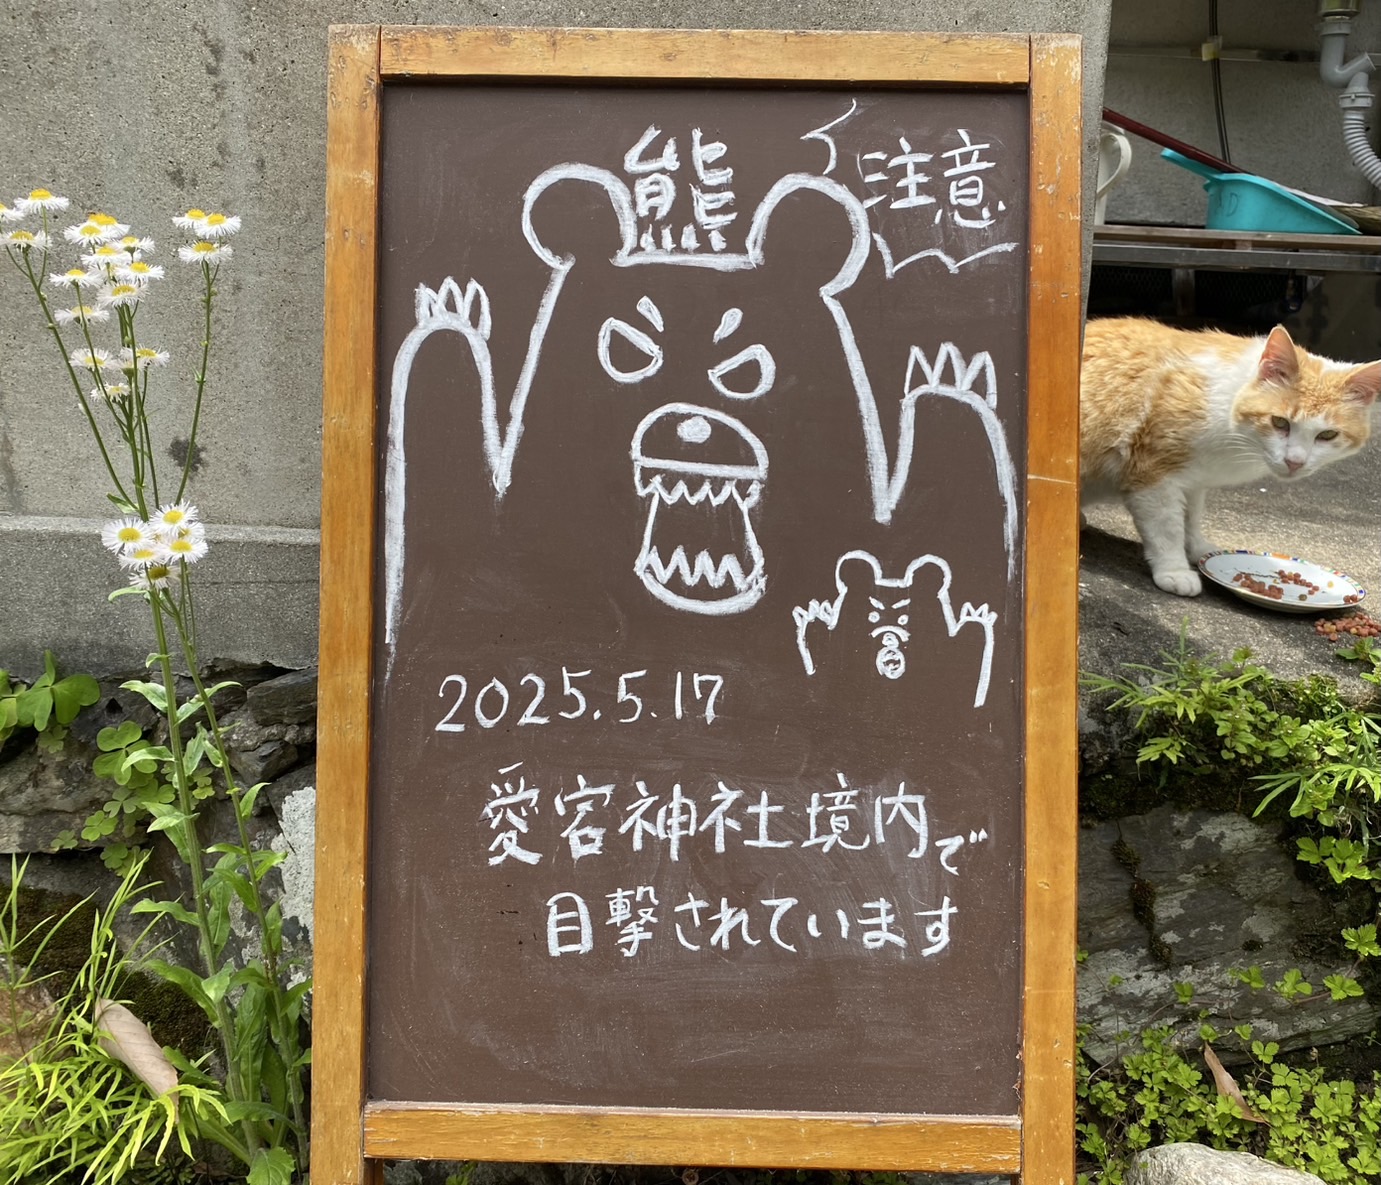 熊
注意
2025.5.17
愛宕神社境内で
目撃されています